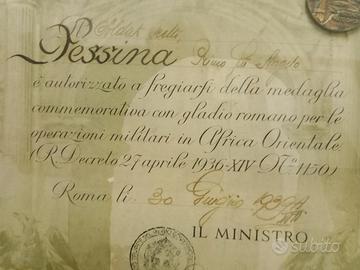 Il Soldato
Pessina Remo fu Angelo
è autorizzato a fregiarsi della medaglia
commemorativa con gladio romano per le
operazioni militari in Africa Orientale
(R. Decreto 27 aprile 1936-XIV Nº. 1150)
Roma li 30 Giugno 1939
IL MINISTRO
subito